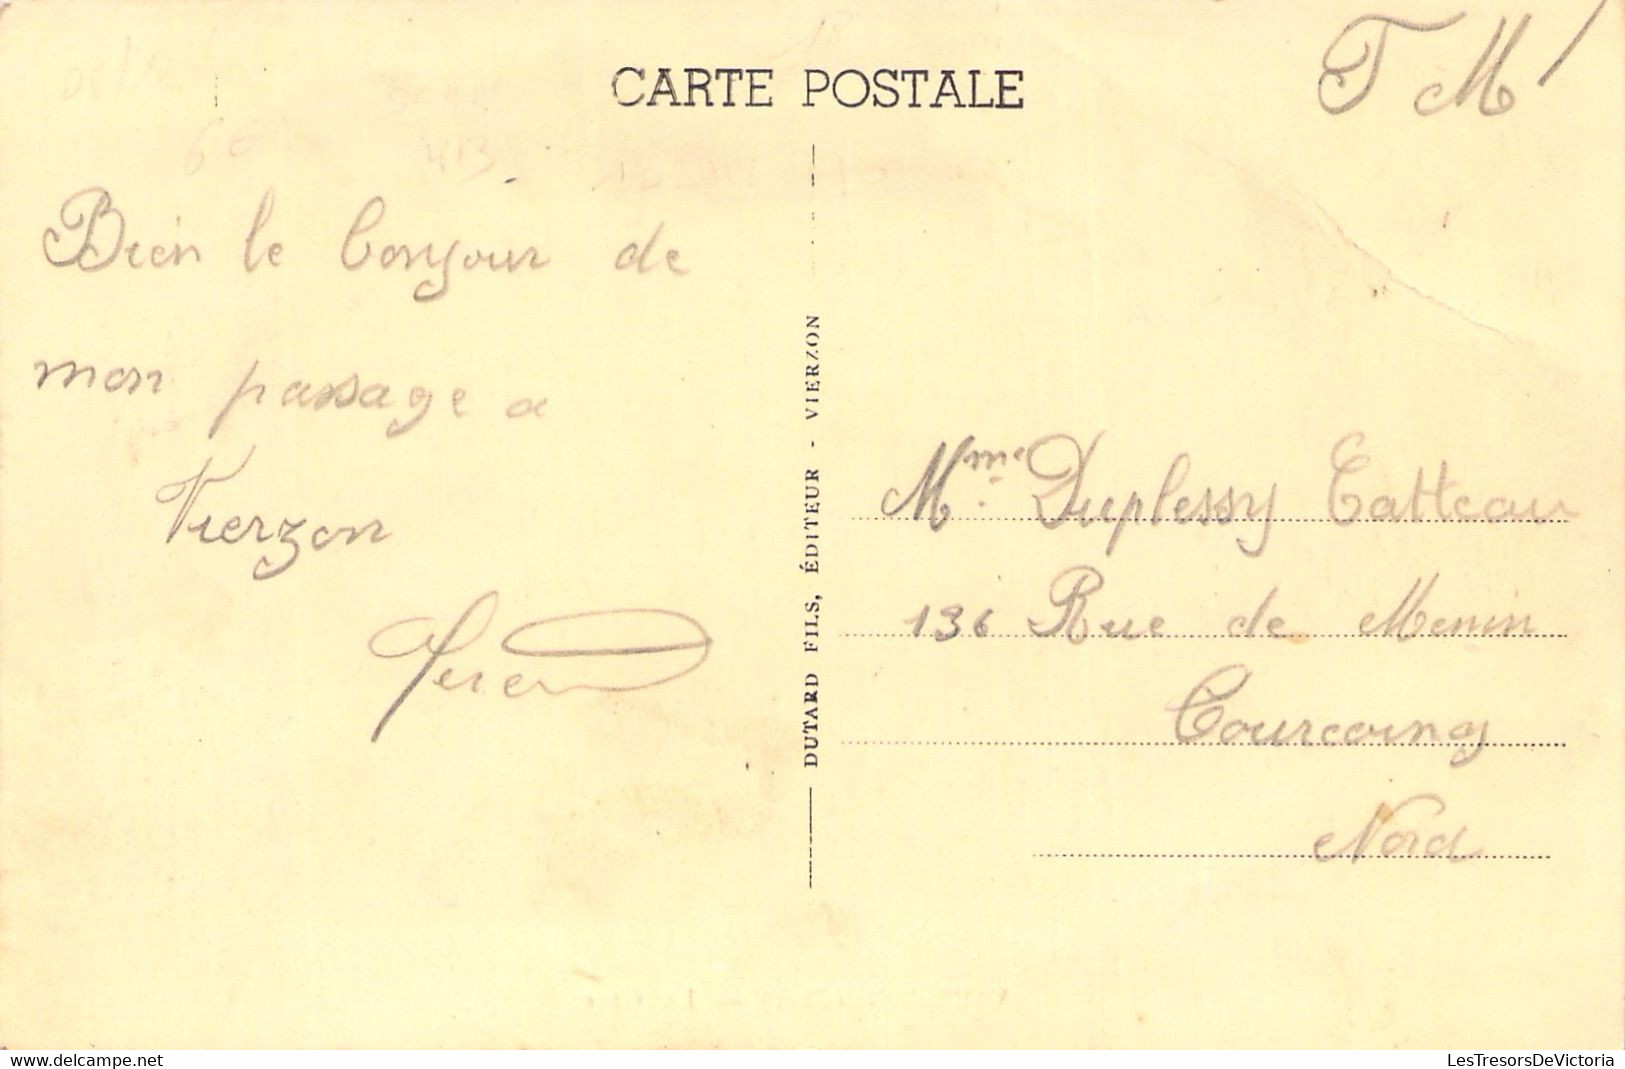 CARTE POSTALE
F M
Bien le bonjour de
mon passage a
Vierzon
DUTARD FILS, ÉDITEUR - VIERZON
Mme Duplessy Catteau
136 Rue de Menin
Tourcoing
Nord
delcampe.net
LesTresorsDeVictoria